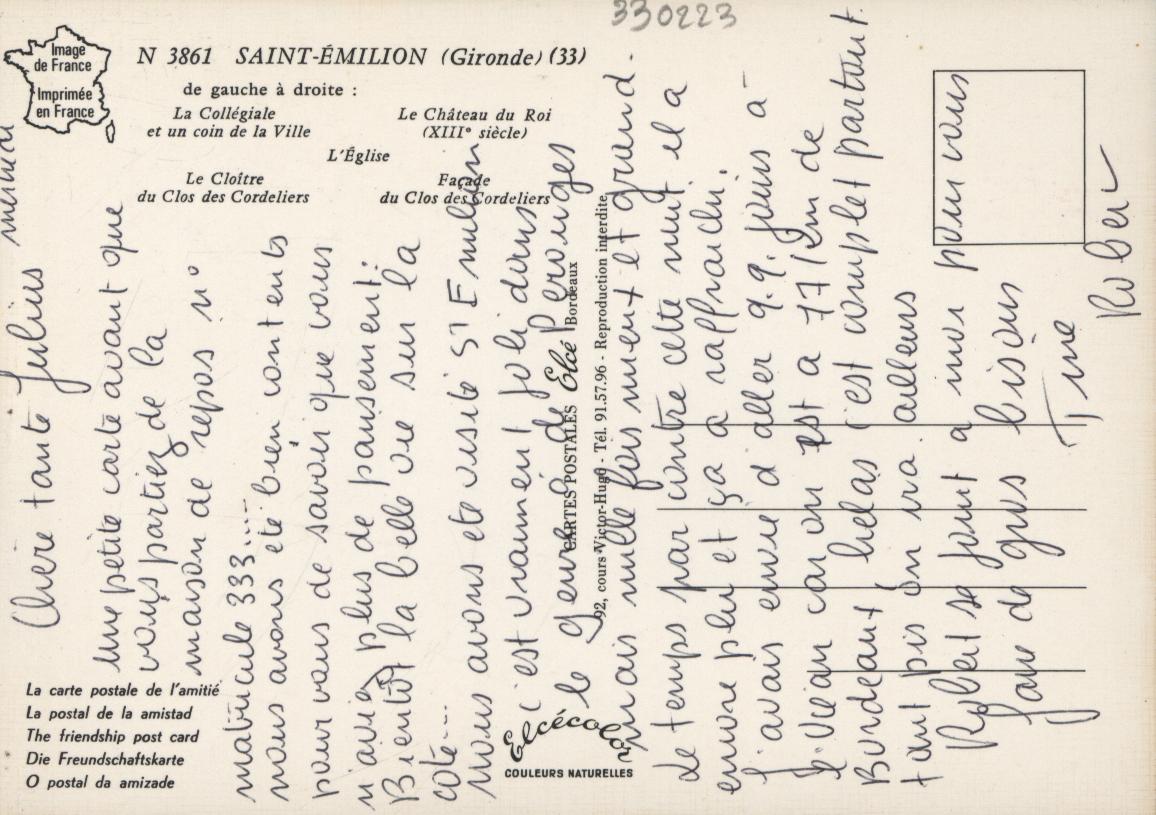 330223
Image
de France
Imprimée
en France
N 3861 SAINT-ÉMILION (Gironde) (33)
de gauche à droite :
La Collégiale
et un coin de la Ville
Le Château du Roi
(XIIIe siècle)
L'Église
Le Cloître
du Clos des Cordeliers
Façade
du Clos des Cordeliers
La carte postale de l'amitié
La postal de la amistad
The friendship post card
Die Freundschaftskarte
O postal da amizade
Elcécolor
COULEURS NATURELLES
CARTES POSTALES Elcé Bordeaux
92, cours Victor-Hugo - Tél. 91.57.96 - Reproduction interdite
Chere tante Julius
une petite carte avant que
vous partiez de la
maison de repos n°
matricule 333....
nous avons été bien contents
pour vous de savoir que vous
n aviez plus de pansement.
Bientôt la belle vie sur la
cote....
Nous avons ete visité St Emilion
c'est vraiment joli dans
le genre de Perouges
mais mille fois mieux et grand.
Le temps par contre cette nuit il a
encore plu et ça a raffraichi.
J'avais envie d aller q.q. jours à
car on est a 77 km de
Bordeaux helas c'est complet partout.
tant pis on ira ailleurs
Robert se joint a moi pour vous
faire de gros bisous
Tine
Rober